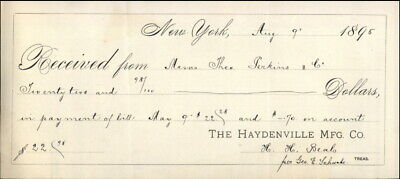 New York, Aug 9 1895
Received from Messrs Theo. Perkins & Co
Twenty two and 98/100 Dollars,
in payment of bill May 9 $22 28 and $-.70 on account
THE HAYDENVILLE MFG. CO.
$22 98
H. H. Beals
per Geo. E. 
TREAS.